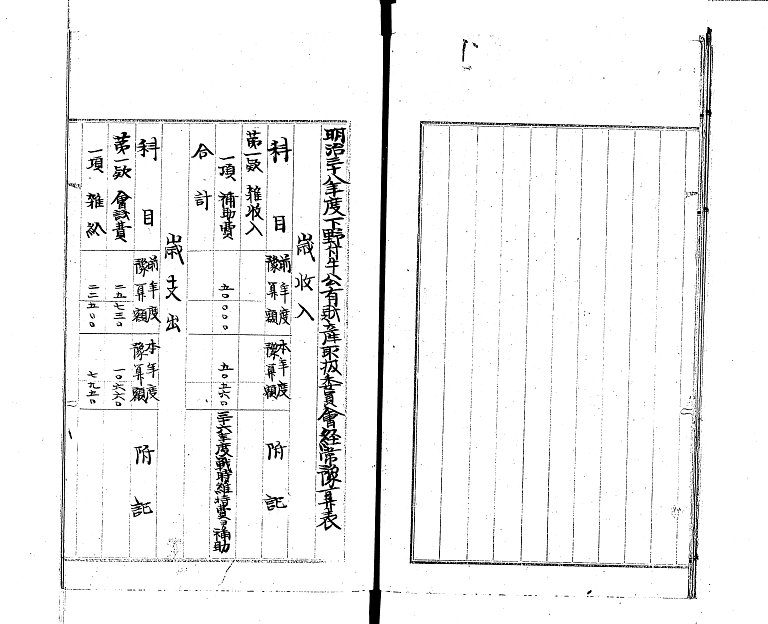 明治三十八年度下野村牛公有財産取扱委員會経常豫算表
歳收入
科目 前年度豫算額 本年度豫算額 附記
第一款 雑收入
一項 補助費 五〇〇〇〇 五〇三六〇 三十六年度戰時維持費ヨ補助
合計
歳支出
科目 前年度豫算額 本年度豫算額 附記
第一款 會議費 二五七三〇 一〇六六〇
一項 雑給 二二五〇〇 七九五〇